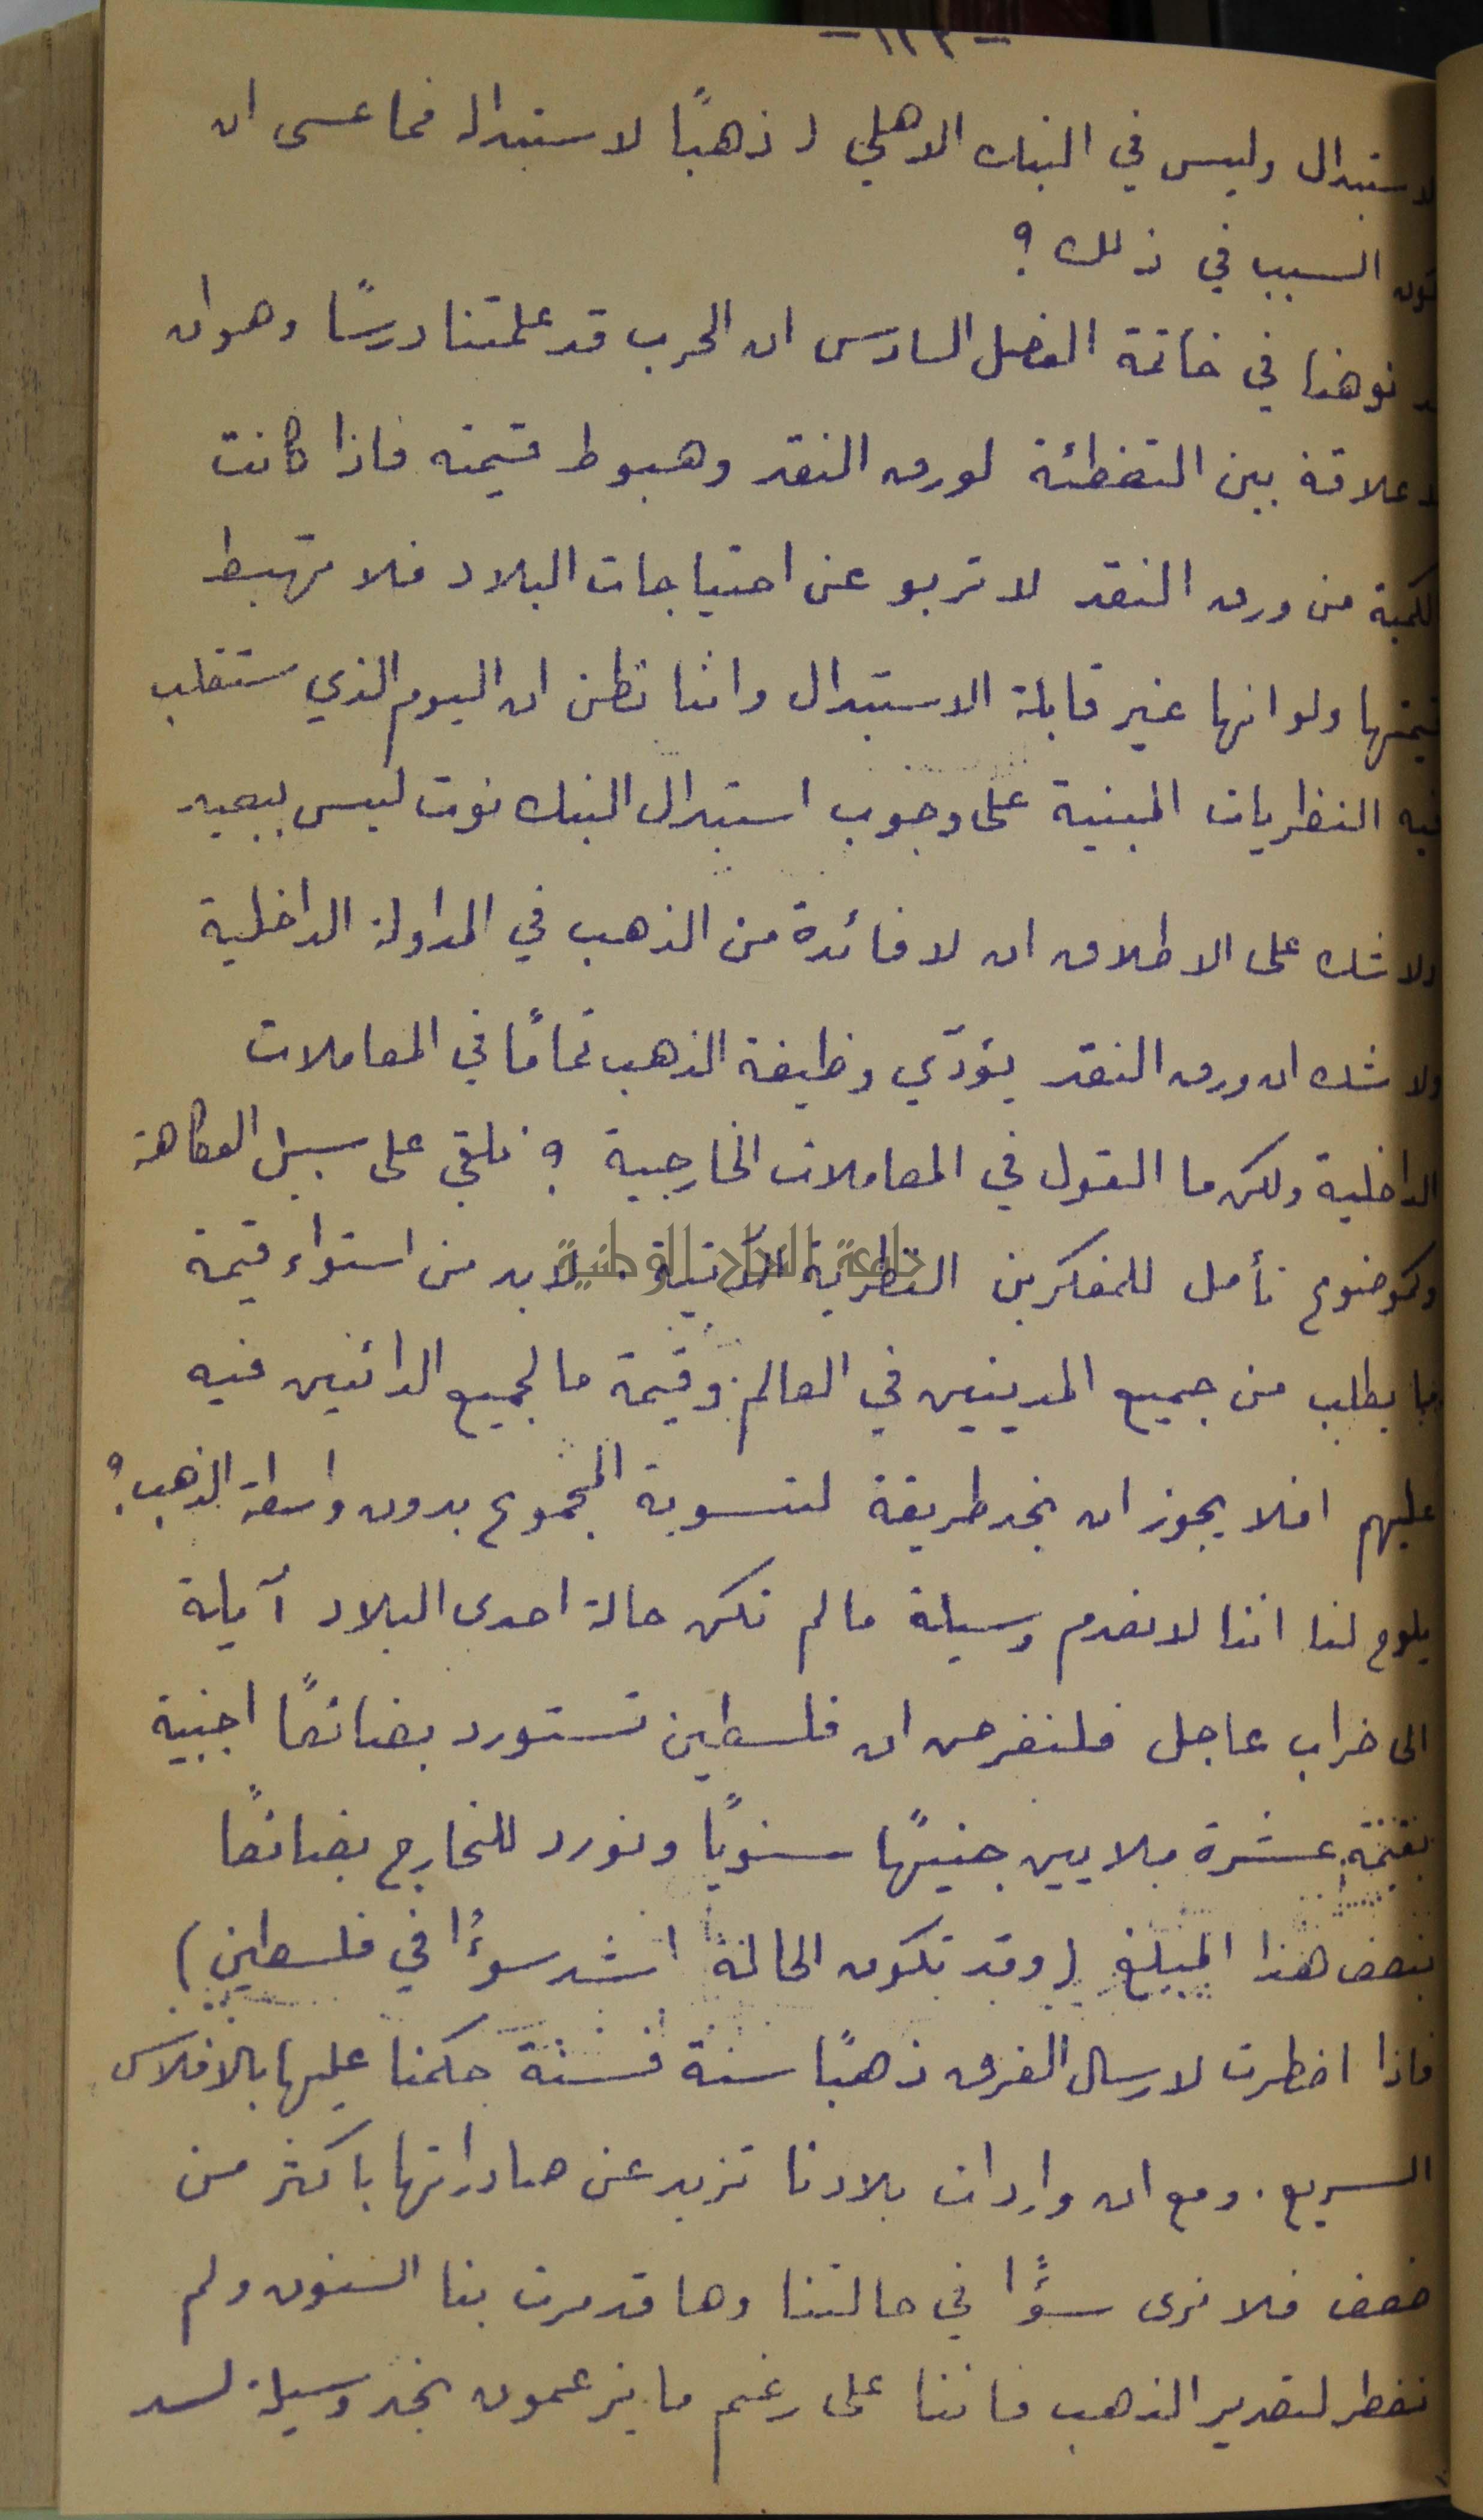 - ١٢٣ -
لاستبدال وليس في البنك الاهلي ذهبًا لاستبداله فما عسى ان
يكون السبب في ذلك ؟
قد نوهنا في خاتمة الفصل السادس ان الحرب قد علمتنا درسًا وهو ان
لا علاقة بين التغطئة لورق النقد وهبوط قيمته فاذا كانت
الكمية من ورق النقد لا تربو عن احتياجات البلاد فلا تهبط
قيمتها ولو انها غير قابلة الاستبدال واننا نظن ان اليوم الذي ستقلب
فيه النظريات المبنية على وجوب استبدال البنك نوت ليس ببعيد
ولا شك على الاطلاق ان لا فائدة من الذهب في المداولة الداخلية
ولا شك ان ورق النقد يؤدّي وظيفة الذهب تمامًا في المعاملات
الداخلية ولكن ما القول في المعاملات الخارجية ؟ نلقي على سبيل الفكاهة
وكموضوع تأمل للمفكرين النظرية الآتية . لا بد من استواء قيمة
جامعة النجاح الوطنية
ما يطلب من جميع المدينين في العالم وقيمة ما لجميع الدائنين فيه
عليهم افلا يجوز ان نجد طريقة لتسوية المجموع بدون واسطة الذهب ؟
يلوح لنا اننا لا نعدم وسيلة ما لم تكن حالة احدى البلاد آيلة
الى خراب عاجل فلنفرض ان فلسطين تستورد بضائعًا اجنبية
بقيمة عشرة ملايين جنيهًا سنويًا وتورد للخارج بضائعًا
بنصف هذا المبلغ (وقد تكون الحالة اشد سوءًا في فلسطين)
فاذا اضطرت لارسال الفرق ذهبًا سنة فسنة حكمنا عليها بالافلاس
السريع . ومع ان واردات بلادنا تزيد عن صادراتها باكثر من
ضعف فلا نرى سوًءا في حالتنا وها قد مرت بنا السنون ولم
نضطر لتصدير الذهب فاننا على رغم ما يزعمون نجد وسيلة لسد